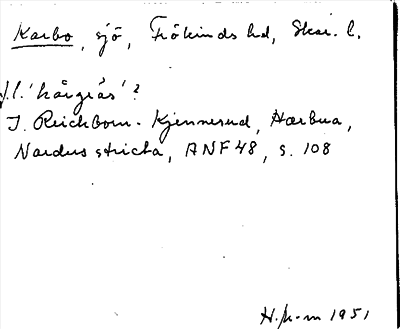 Karbo, sjö, Frökinds hd, Skar. l.
f.l. 'hårgräs'?
I. Reichborn-Kjennerud, Harbua,
Nardus stricta, ANF 48, s. 108
1951